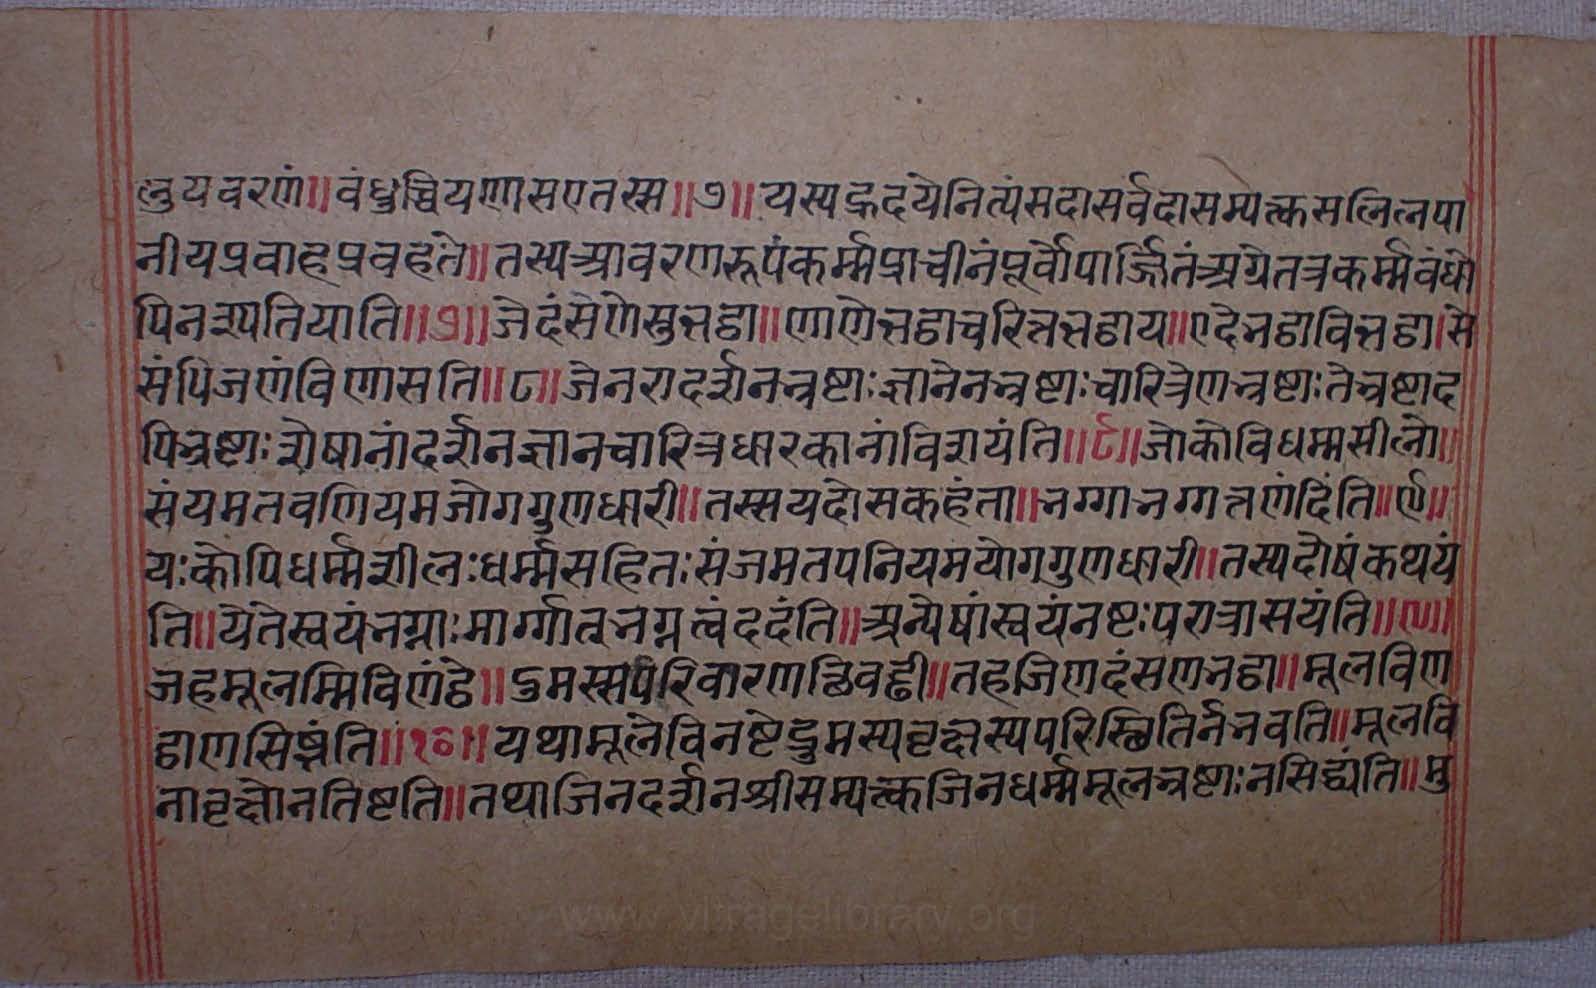 लुयवरणं॥वंधुच्चियणासएतस्स॥७॥यस्पह्रदयेनित्यंसदासर्वदासम्यत्कसलिलपा
नीयप्रवाहप्रवहते॥तस्यआवरणरूपंकर्म्मप्राचीनंपूर्वोपार्ज्जितंअग्रेतत्रकर्म्मवंधो
पिनश्यतियाति॥७॥जेदंसणेसुत्तठा॥णाणेत्तठाचरित्तत्तठाय॥एदेत्तठावित्तठा।से
संपिजणंविणासति॥८॥जेनरादर्शनभ्रष्टाःज्ञानेनभ्रष्टाःचारित्रेणभ्रष्टाःतेभ्रष्टाद
पिभ्रष्टाःशेषानांदर्शनज्ञानचारित्रधारकानांविशयंति॥८॥जोकोविधम्मसीलो॥
संयमतवणियमजोगगुणधारी॥तस्सयदोसकहंता॥भग्गाभग्गत्तणंदिंति॥९॥
यःकोपिधर्म्मशीलःधर्म्मसहितःसंजमतपनियमयोगगुणधारी॥तस्पदोषंकथयं
ति॥येतेस्वयंभग्नाःमार्ग्गात्भग्नत्वंददंति॥अन्येषांस्वयंनष्टःपरात्रासयंति॥९॥
जहमूलम्मिविणंठे॥दुमस्सपरिवारणछिवढ्ढी॥तहजिणदंसणभठा॥मूलविण
ठाणसिझंति॥१०॥यथामूलेविनष्टेद्रुमस्यवृक्षस्यपरिस्छितिर्नभवति॥मूलवि
नावृक्षोनतिष्टति॥तथाजिनदर्शनश्रीसम्यत्कजिनधर्म्ममूलभ्रष्टाःनसिद्ध्यंति॥मु
www.vitragelibrary.org